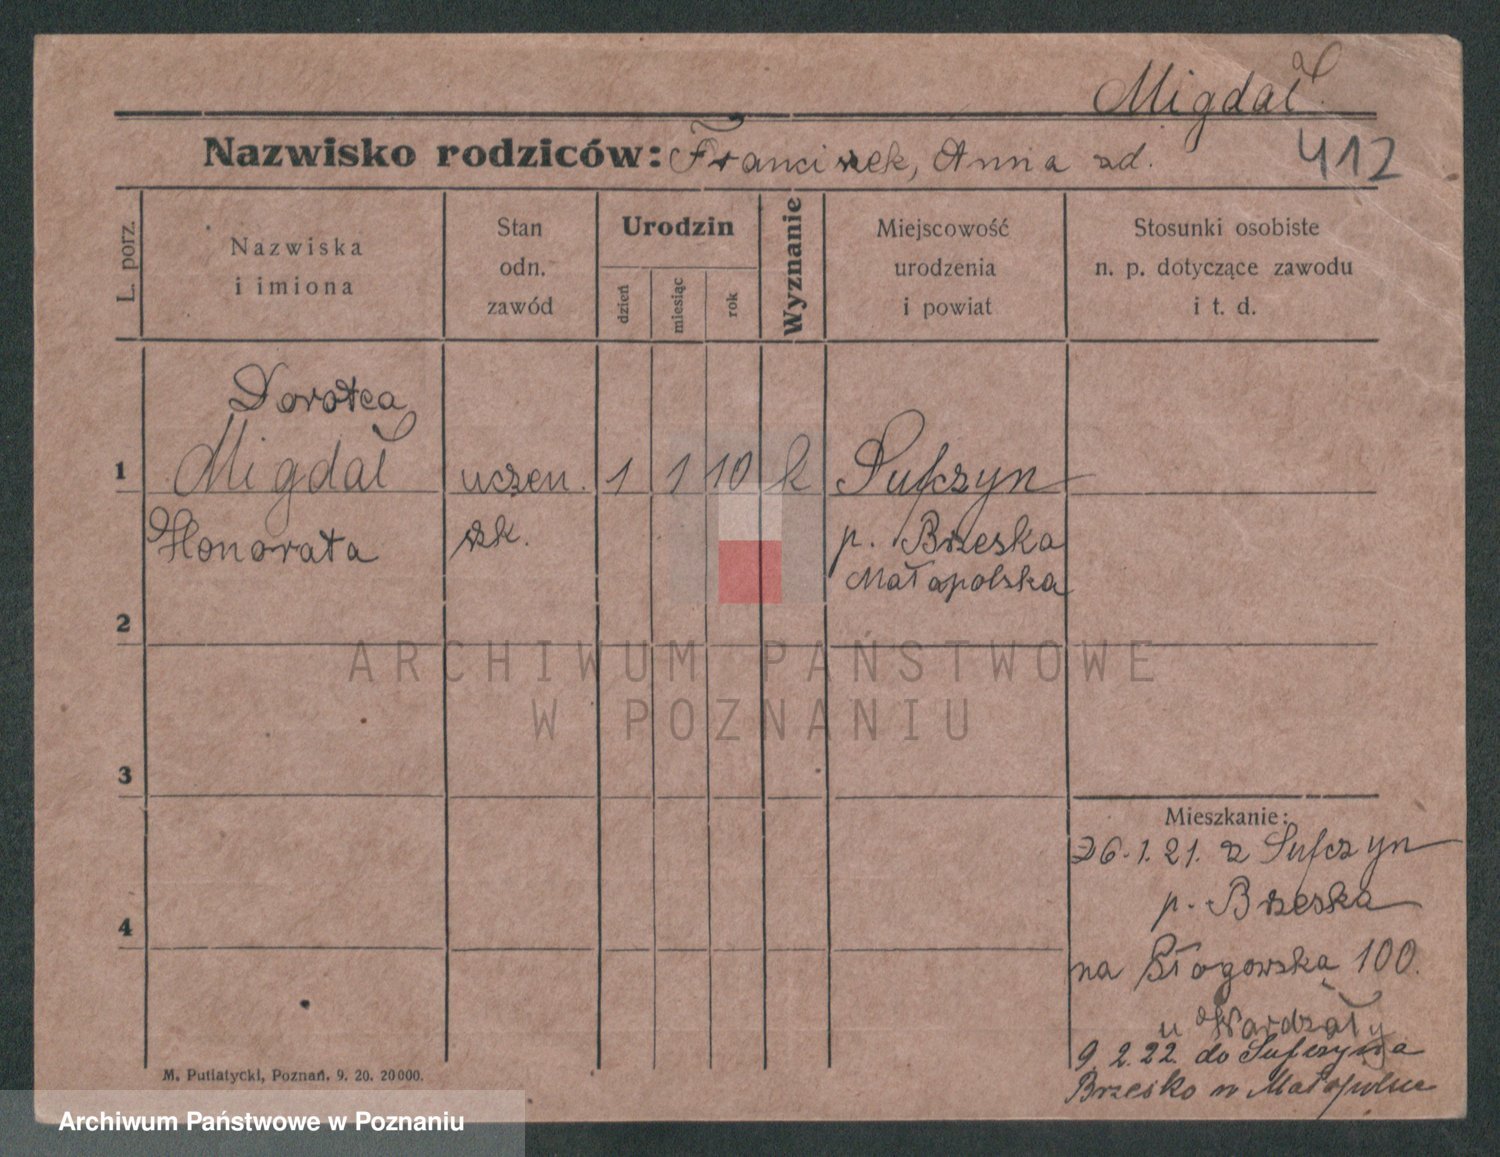 Migdał
Nazwisko rodziców: Franciszek, Anna zd.
412
L. porz.
Nazwiska
i imiona
Stan
odn.
zawód
Urodzin
dzień
miesiąc
rok
Wyznanie
Miejscowość
urodzenia
i powiat
Stosunki osobiste
n. p. dotyczące zawodu
i t. d.
Dorotea
1 Migdał uczen. 1 1 10 k Sufczyn
Honorata szk. p. Brzeska
Małapolska
2
3
4
Mieszkanie:
26.1.21. z Sufczyn
p. Brzeska
na Głogowska 100.
u Wardzały
9 2.22. do Sufczyna
Brzesko w Małopolsce
M. Putiatycki, Poznań. 9. 20. 20000.
ARCHIWUM PAŃSTWOWE
W POZNANIU
Archiwum Państwowe w Poznaniu